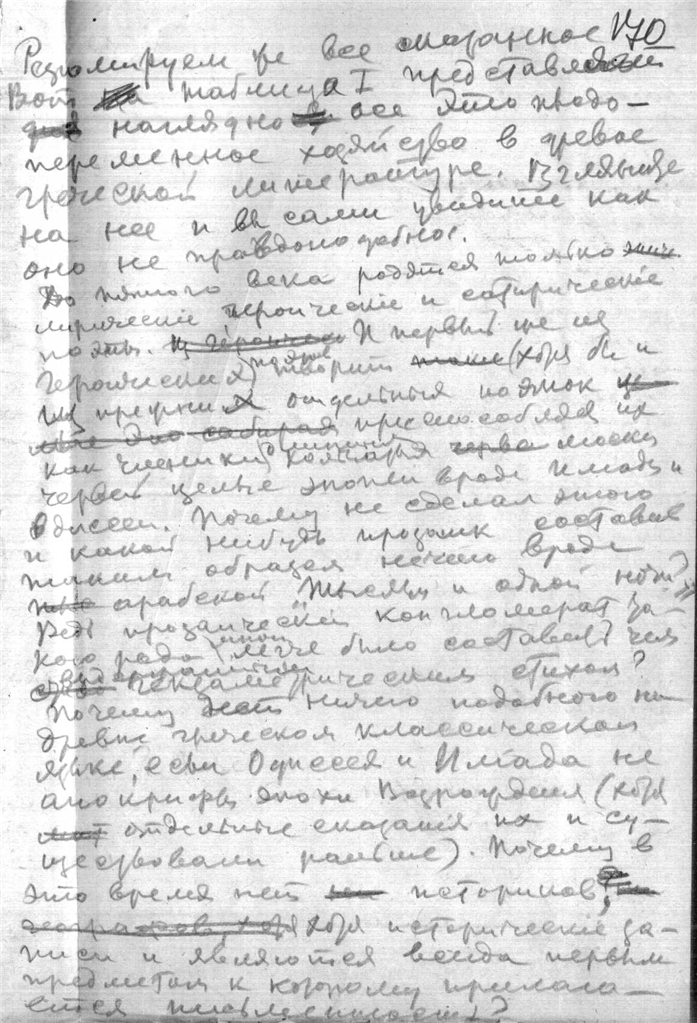 170
Резюмируем же все сказанное
Вот таблица I представля
наглядно все это плодо-
переменное хозяйство в древне
греческой литературе. Взгляните
на нее и вы сами увидите как
оно не правдоподобное.
До пятого века родятся только
лирическіе героическіе и сатирическіе
поэты. И первый же из
героических поэтов творит (хотя бы и
из прежних отдельных поэмок
приспособляя их
как членики к
червей целые эпопеи вроде Илиады и
Одиссеи. Почему не сделал этого
и какой нибудь прозаик составив
таким образом нечто вроде
арабской "Тысячи и одной ночи"?
Ведь прозаический конгломерат та-
кого рода легче было составить чем
гекзаметрическим стихом?
Почему нет ничего подобного на
древне греческом классическом
языке, если Одиссея и Илиада не
апокрифы эпохи Возрождения (хотя
отдельные сказания их и су-
ществовали раньше). Почему в
это время нет историков,
хотя историческіе за-
писи и являются всегда первым
предметом к которому прилага-
ется письменность?